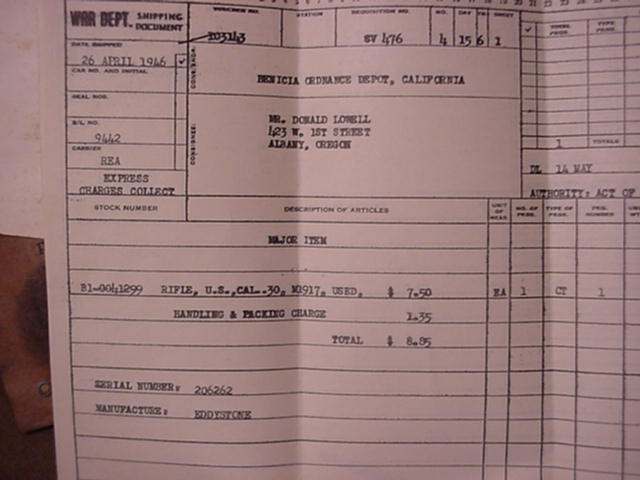 WAR DEPT. SHIPPING DOCUMENT
VOUCHER NO.
STATION
REQUISITION NO.
NO.
DAY
SHEET
TOTAL PKGS.
TYPE PKGS.
203143
SV 476
4
15
6
1
DATE SHIPPED
26 APRIL 1946
CAR NO. AND INITIAL
BENICIA ORDNANCE DEPOT, CALIFORNIA
SEAL NOS.
B/L NO.
9442
CONSIGNEE:
MR. DONALD LOWELL
423 W. 1ST STREET
ALBANY, OREGON
1 TOTALS
CARRIER
REA
DL 14 MAY
EXPRESS
CHARGES COLLECT
AUTHORITY: ACT OF
STOCK NUMBER
DESCRIPTION OF ARTICLES
UNIT OF MEAS.
NO. OF PKGS.
TYPE OF PKGS.
PKG. NUMBER
MAJOR ITEM
B1-0041299 RIFLE, U.S.,CAL..30, M1917, USED, $ 7.50 EA 1 CT 1
HANDLING & PACKING CHARGE 1.35
TOTAL $ 8.85
SERIAL NUMBER: 206262
MANUFACTURE: EDDYSTONE